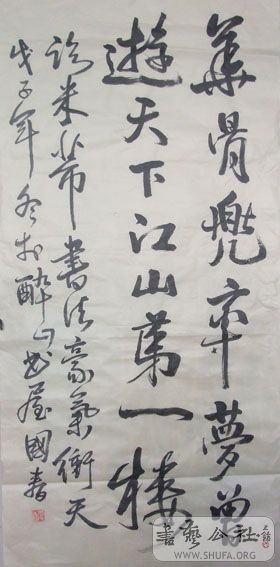 華胥兜率夢曾
遊天下江山第一樓
米芾書法豪氣衝天
戊子年冬於醉書屋國
書藝公社
WWW.SHUFA.ORG